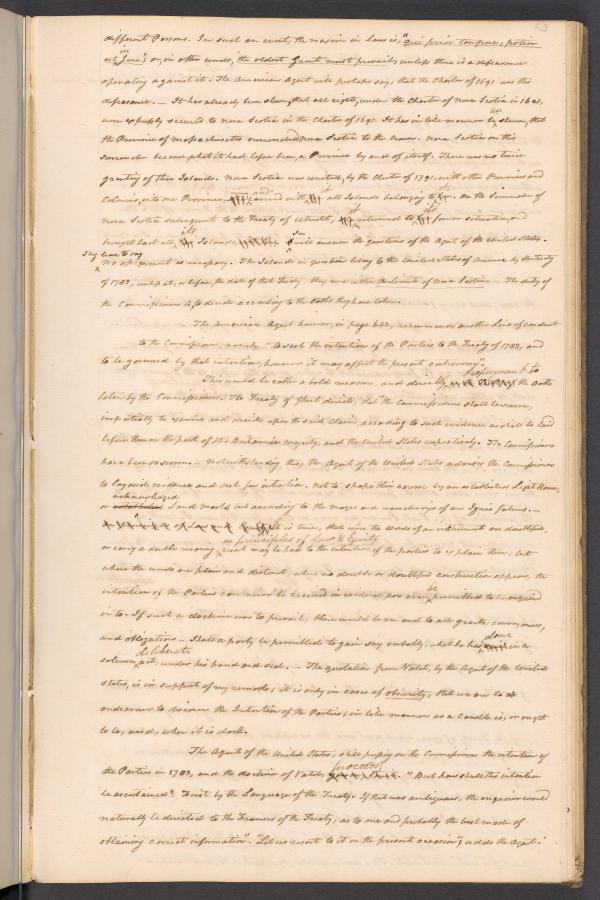 different Persons. In such an event, the maxim in Law is, "qui prior tempore, potior
est in Jure"; or, in other words, the oldest Grant must prevail, unless there is a defeasance
operating against it. The American Agent will perhaps say, that the Charter of 1691 was this
defeasance. — It has already been shewn, that all rights, under the Charter of Nova Scotia in 1621,
were expressly secured to Nova Scotia in the Charter of 1691. It has in like manner been shewn, that
the Province of Massachusetts surrendered Nova Scotia to the Crown. Nova Scotia on this
surrender became, what it had before been, a Province by and of itself. There was no twice
granting of these Islands. Nova Scotia was united, by the Charter of 1791, with other Provinces and
Colonies, into one Province, and carried with it all Islands belonging to it. On the Surrender of
Nova Scotia subsequent to the Treaty of Utrecht, it returned to its former situation, and
brought back all its Islands. This will answer the questions of the Agent of the United States.
I beg leave to say
No argument is necessary. The Islands in question belong to the United States of America by the Treaty
of 1783, unless at, or before, the date of that Treaty, they were within the Limits of Nova Scotia — The duty of
the Commissioners is, to decide according to the Oaths they have taken.
The American Agent however, in page 642, recommends another Line of conduct
to the Commissioners, namely, "to seek the intention of the Parties to the Treaty of 1783, and
to be governed by that intention, however it may affect the present controversy".
This would be rather a bold measure, and directly repugnant to the Oaths
taken by the Commissioners. The Treaty of Ghent directs, that the Commissioners shall be sworn,
impartially to examine and decide upon the said claims, according to such evidence as shall be laid
before them on the part of His Britannic Majesty, and the United States respectively. The Commissioners
have been so sworn. — Notwithstanding this, the Agent of the United States advises the Commissioners
to lay aside evidence and seek for intention, not to shape their course by an established Light House,
or acknowledged Land marks but according to the mazes and wanderings of an Ignis fatuus. —
It is true, that when the words of an instrument are doubtful,
or carry a double meaning, on principles of Law & Equity recourse may be had to the intention of the parties to explain them; but
where the words are plain and distinct, when no double or doubtful construction appears, the
intention of the Parties can never be received in evidence, nor even be permitted to be enquired
into. If such a doctrine was to prevail, there would be an end to all grants, conveyances,
and obligations — Shall a party be permitted to gain say verbally, what he has done in a
solemn, deliberate act, under his hand and seal. — The quotation from Vatel, by the Agent of the United
States, is in support of my remarks; it is only in cases of obscurity, that we are to
endeavor to discover the Intention of the Parties; in like manner as a Candle is, or ought
to be, used, when it is dark.
The Agent of the United States, still pressing on the Commissioners the intention of
the Parties in 1783, and the doctrine of Vatel, proceeds. "But how shall this intention
be ascertained? First by the Language of the Treaty. If that was ambiguous, the enquirer would
naturally be directed to the Framers of the Treaty, as to one and probably the best mode of
obtaining correct information". "Let us resort to it on the present occasion"; adds the Agent."